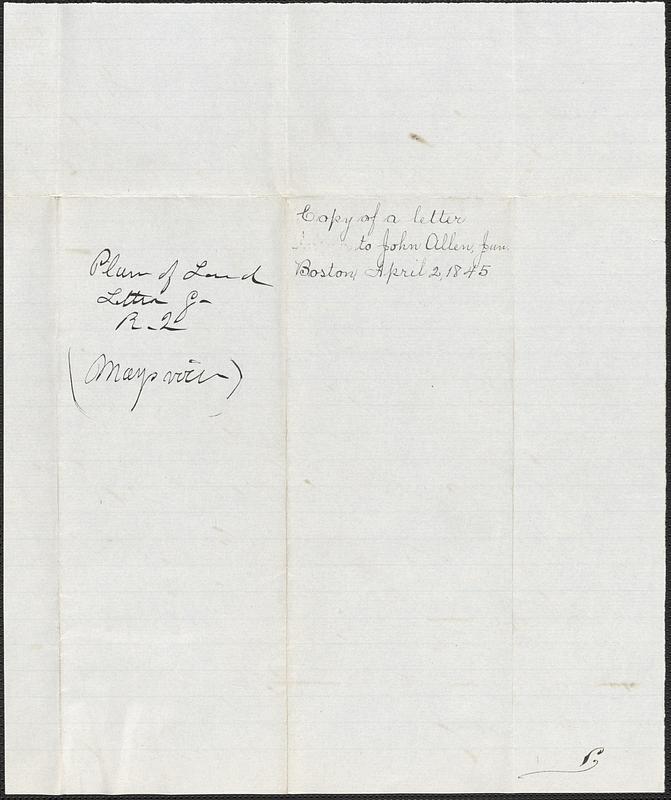 Plan of Land
Letter G
R. 2
(Maysville)
Copy of a letter
to John Allen, Jun.
Boston, April 2, 1845